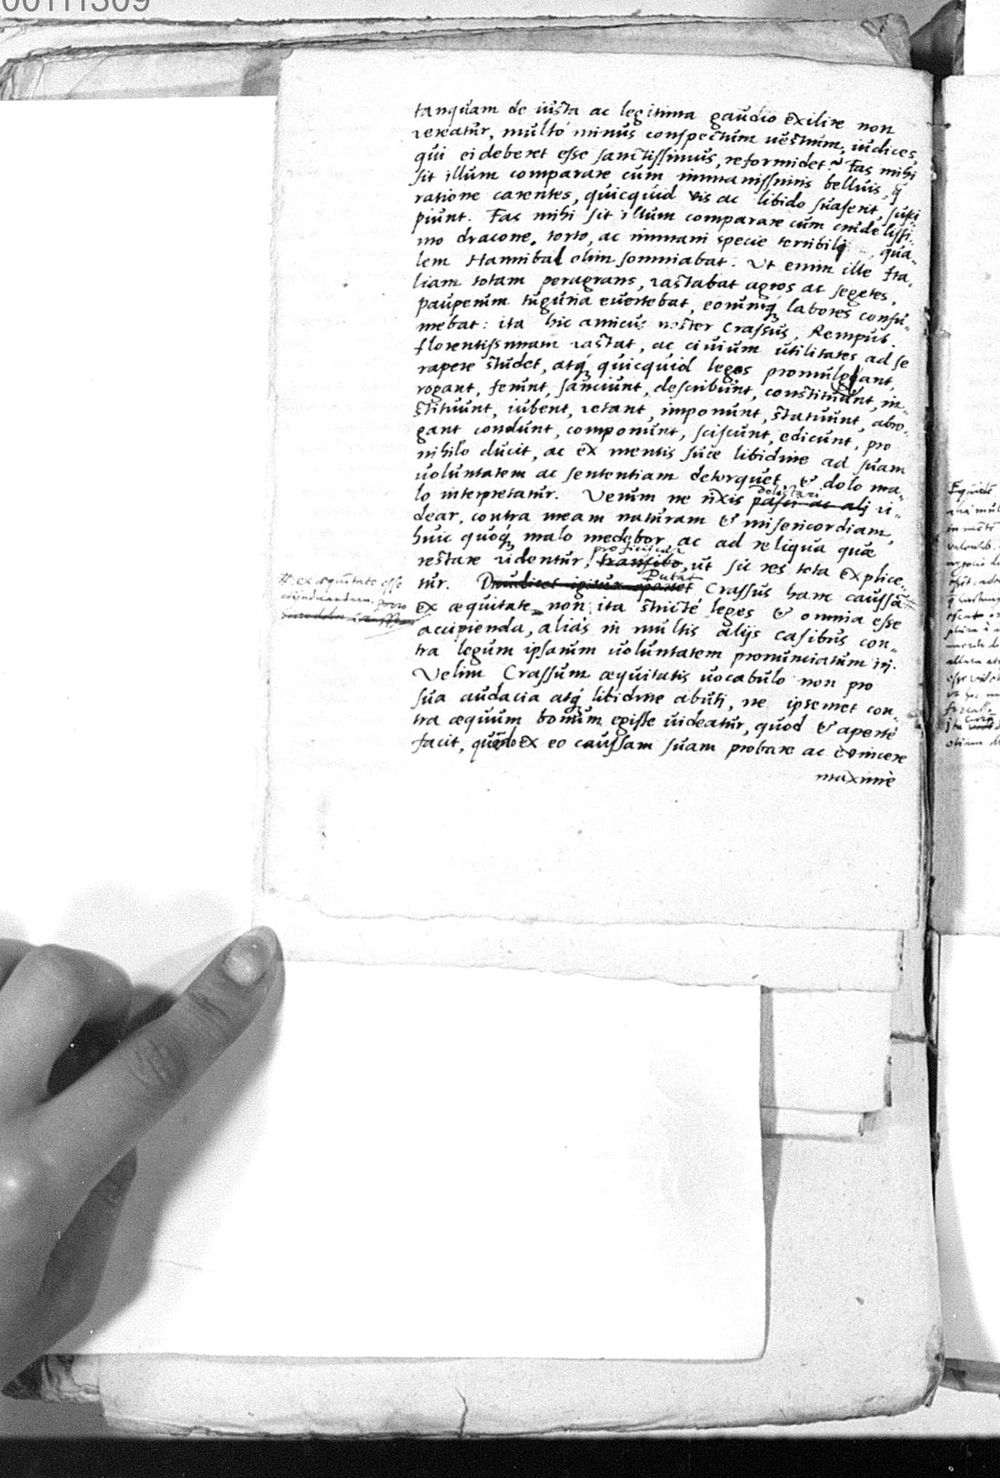 00111309
tanquam de iusta ac legitima gaudio exilire non
vereatur, multo minus conspectum uestrum, iudices,
qui ei deberet esse sanctissimus, reformidet? Fas mihi
sit illum comparare cum immanissimis belluis, q̃
ratione carentes, quicquid vis ac libido suaserit, susci
piunt. Fas mihi sit illum comparare cum crudelissi-
mo dracone, torto, ac immani specie terribili, qua-
lem Hannibal olim somniabat. Vt enim ille Ita-
liam totam peragrans, vastabat agros ac segetes,
pauperum tuguria euertebat, eorumq́ labores consu-
mebat: ita hic amicus noster Crassus, Rempub.
florentissimam vastat, ac ciuium utilitates ad se
rapere studet, atq́ quicquid leges promulgant,
rogant, ferunt, sanciunt, describunt, constituunt, in-
stituunt, iubent, vetant, imponunt, statuunt, abro-
gant condunt, componunt, sciscunt, edicunt, pro
nihilo ducit, ac ex mentis suæ libidine ad suam
uoluntatem ac sententiam detorquet, & dolo ma-
lo interpretatur. Verum ne uexis delectari pasci ac ali vi-
dear, contra meam naturam & misericordiam,
huic quoq́ malo medebor, ac ad reliqua quæ
restare videntur, proficiscar transibo, ut sic res tota explice-
tur. Putat Crassus hanc caussã
ex æquitate non ita stricté leges & omnia esse
accipienda, aliàs in multis alijs casibus con-
tra legum ipsarum uoluntatem pronunciatum iri.
Velim Crassum æquitatis uocabulo non pro
sua audacia atq́ libidine abuti, ne ipsemet con-
tra æquum bonum egisse uideatur, quod & aperté
facit, quando ex eo caussam suam probare ac euincere
maximè
ex æquitate esse
coniudicandam. porro